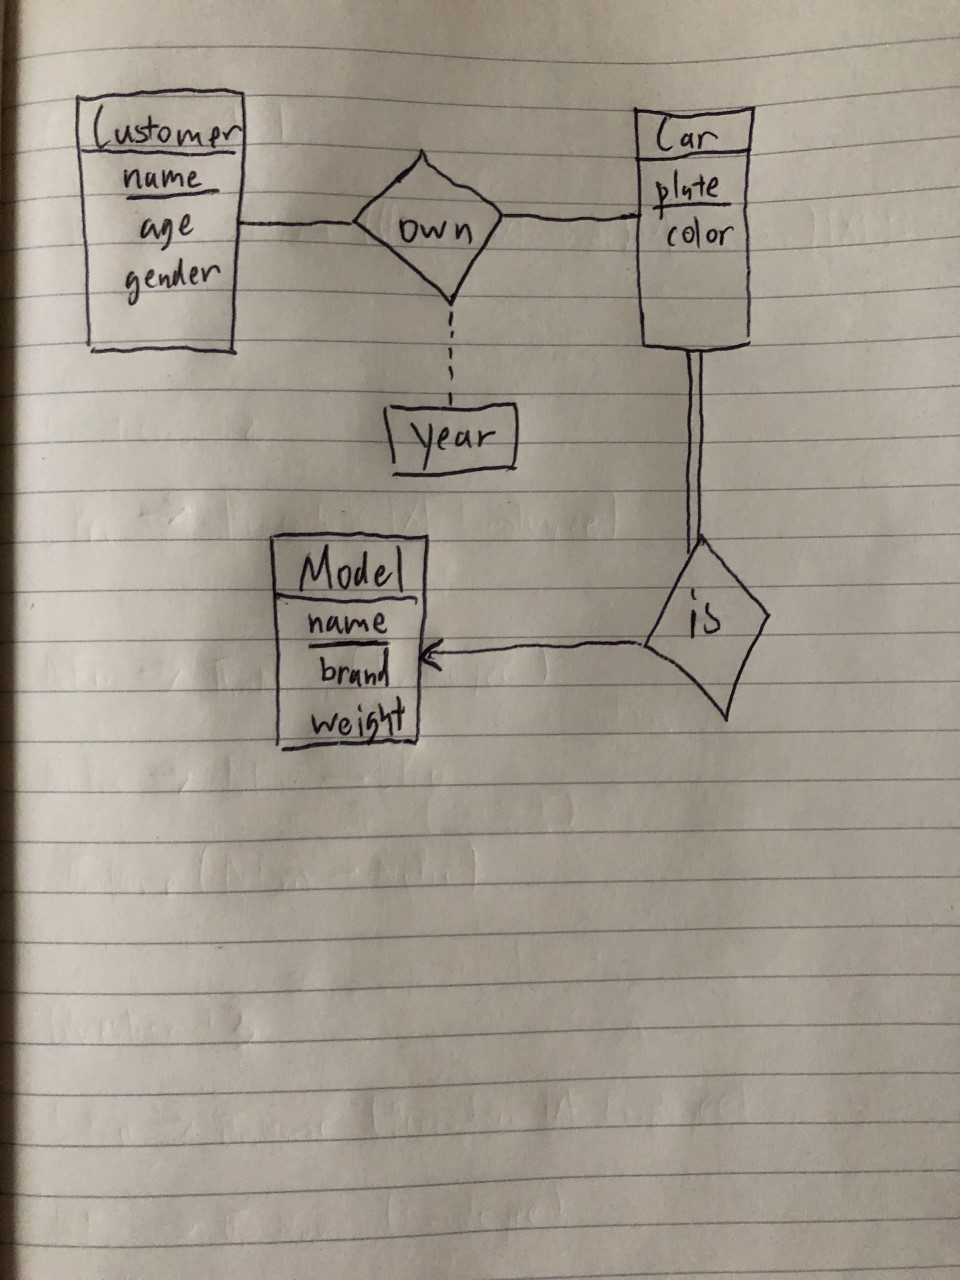 Customer
name
age
gender
own
year
Car
plate
color
is
Model
name
brand
weight